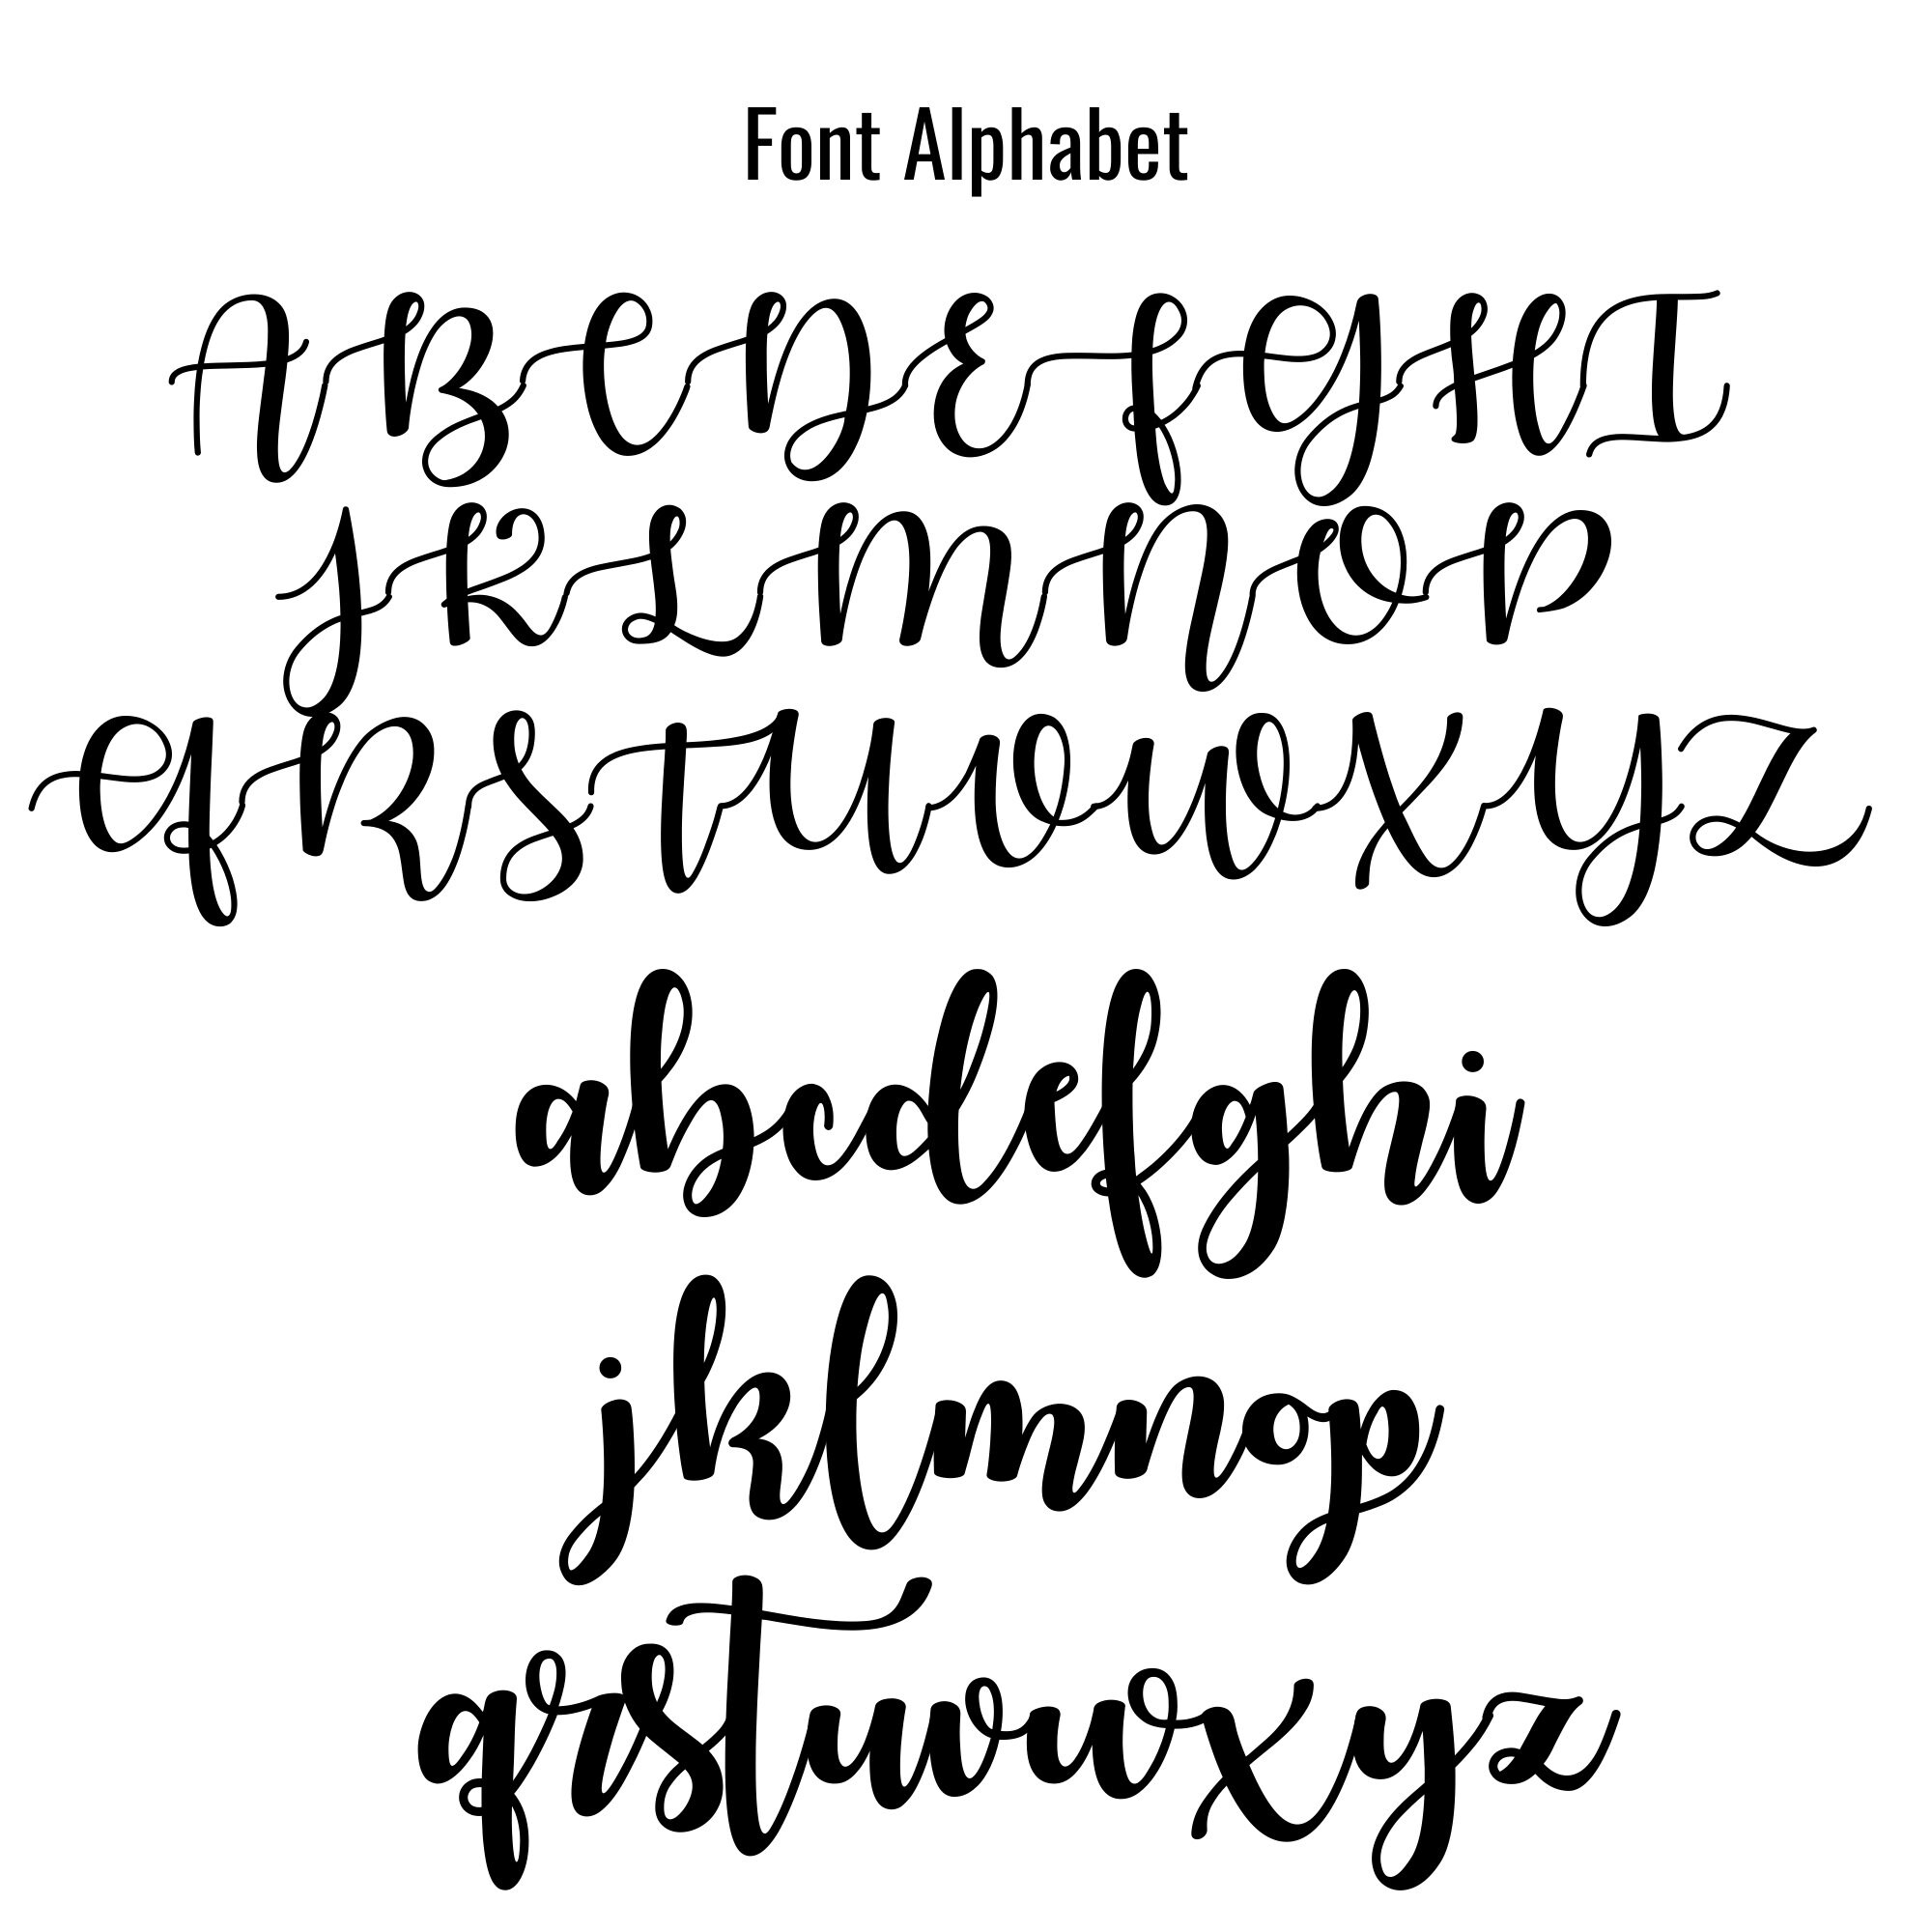 Font Alphabet
ABCDEFGHI
JKLMNOP
QRSTUVWXYZ
abcdefghi
jklmnop
qrstuvwxyz